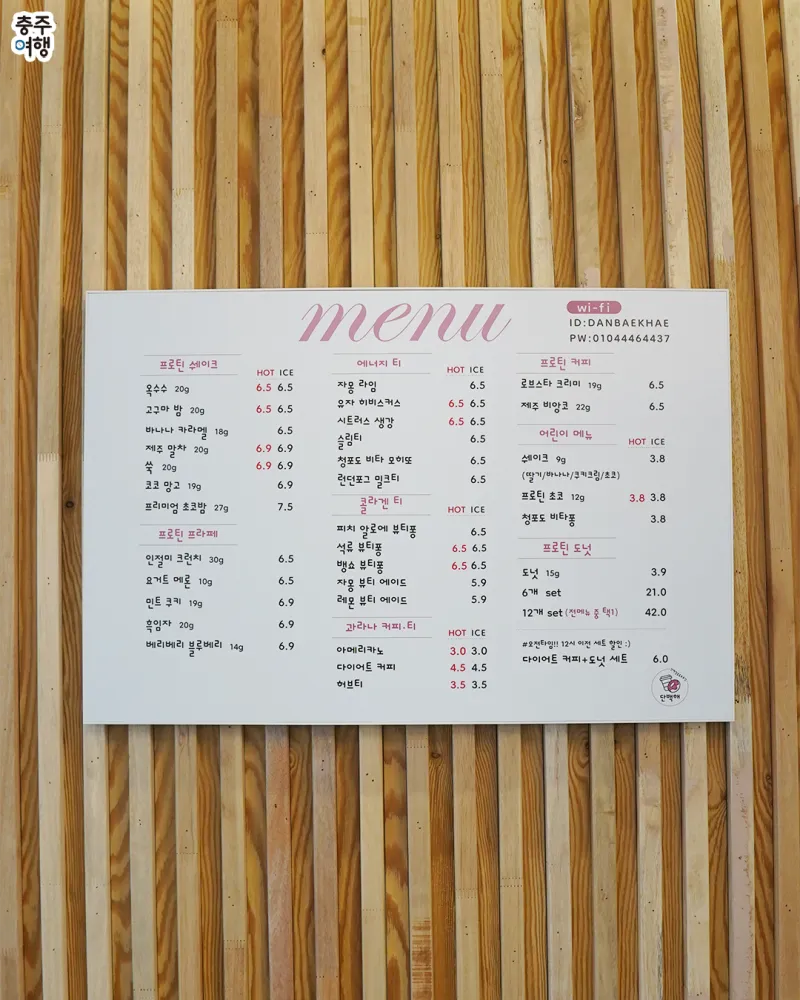 충주
여행
menu
wi-fi
ID:DANBAEKHAE
PW:01044464437
프로틴 쉐이크
HOT ICE
옥수수 20g 6.5 6.5
고구마 밤 20g 6.5 6.5
바나나 카라멜 18g 6.5
제주 말차 20g 6.9 6.9
쑥 20g 6.9 6.9
코코 망고 19g 6.9
프리미엄 초코밤 27g 7.5
프로틴 프라페
인절미 크런치 30g 6.5
요거트 메론 10g 6.5
민트 쿠키 19g 6.9
흑임자 20g 6.9
베리베리 블루베리 14g 6.9
에너지 티
HOT ICE
자몽 라임 6.5
유자 히비스커스 6.5 6.5
시트러스 생강 6.5 6.5
슬림티 6.5
청포도 비타 모히또 6.5
런던포그 밀크티 6.5
콜라겐 티
HOT ICE
피치 알로에 뷰티퐁 6.5
석류 뷰티퐁 6.5 6.5
뱅쇼 뷰티퐁 6.5 6.5
자몽 뷰티 에이드 5.9
레몬 뷰티 에이드 5.9
과라나 커피·티
HOT ICE
아메리카노 3.0 3.0
다이어트 커피 4.5 4.5
허브티 3.5 3.5
프로틴 커피
로브스타 크리미 19g 6.5
제주 비앙코 22g 6.5
어린이 메뉴
HOT ICE
쉐이크 9g 3.8
(딸기/바나나/쿠키크림/초코)
프로틴 초코 12g 3.8 3.8
청포도 비타퐁 3.8
프로틴 도넛
도넛 15g 3.9
6개 set 21.0
12개 set (전메뉴 중 택1) 42.0
#오전타임!! 12시 이전 세트 할인 :)
다이어트 커피+도넛 세트 6.0
단백해